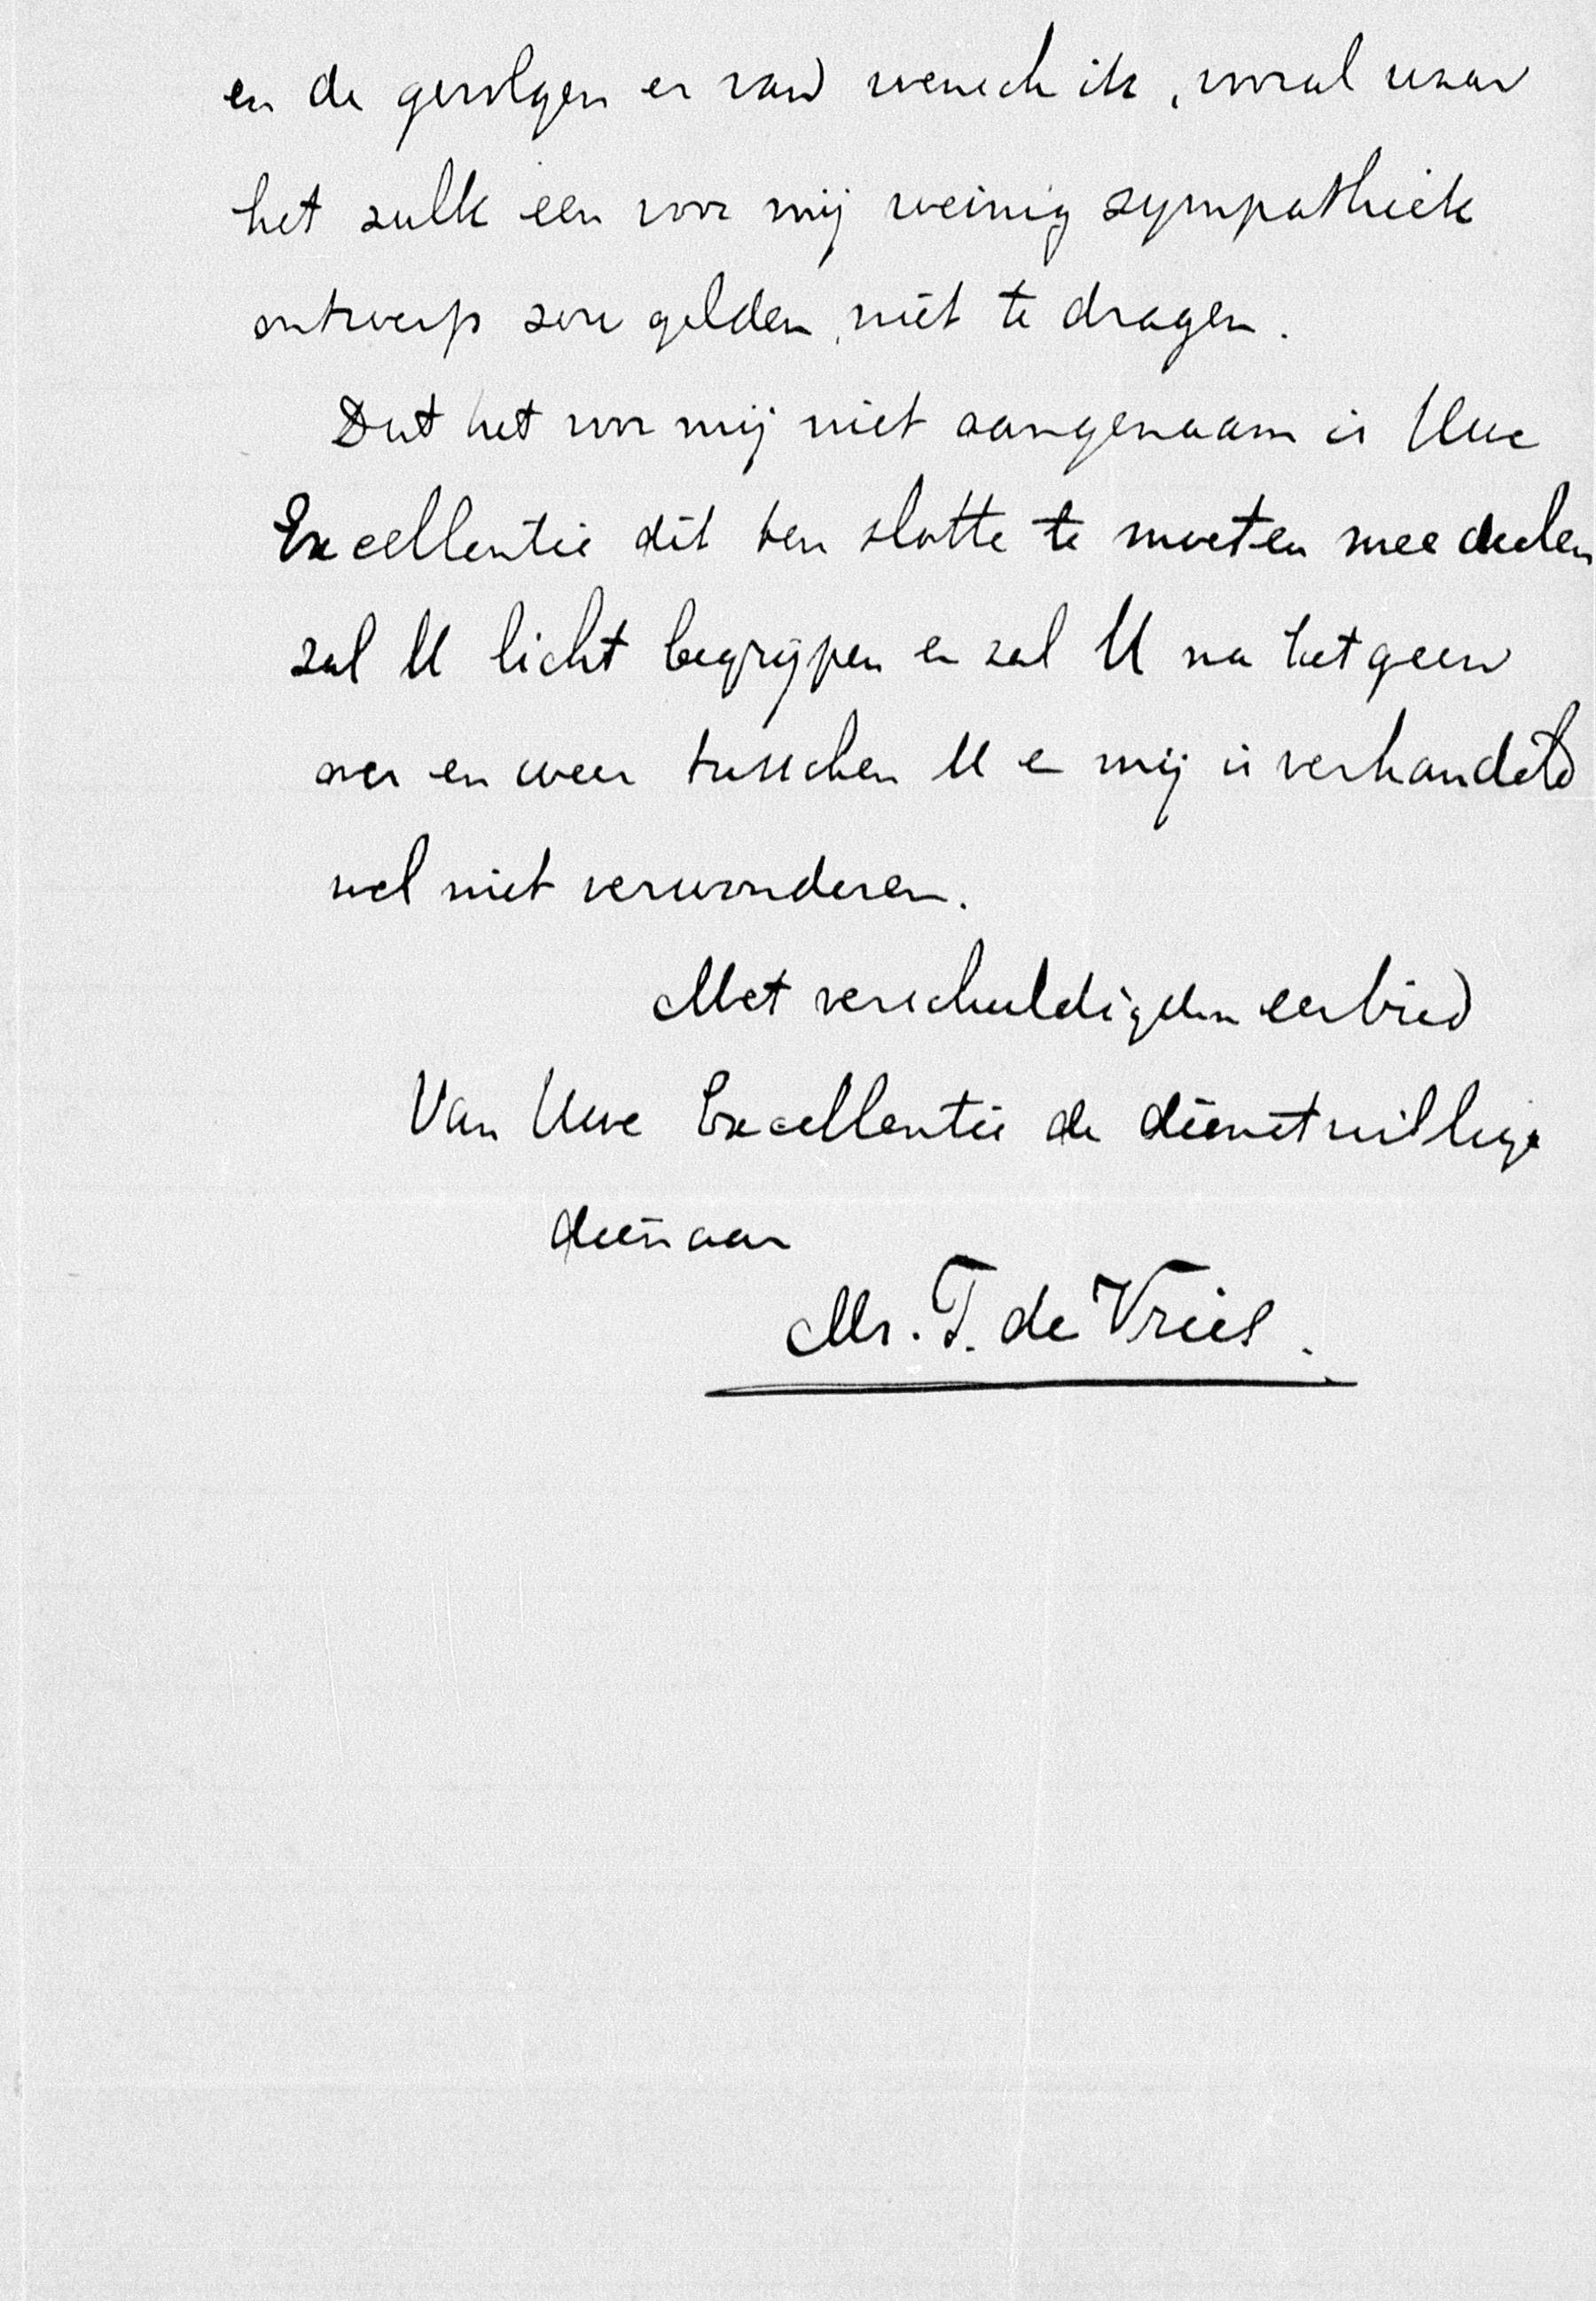 en de gevolgen er van wensch ik, vooral waar
het zulk een voor mij weinig sympathiek
ontwerp zou gelden, niet te dragen.
Dat het voor mij niet aangenaam is Uwe
Excellentie dit ten slotte te moeten meedeelen
zal U licht begrijpen en zal U na hetgeen
over en weer tusschen U en mij is verhandeld
wel niet verwonderen.
Met verschuldigden eerbied
Van Uwe Excellentie de dienstwillige
dienaar
Mr. T. de Vries.